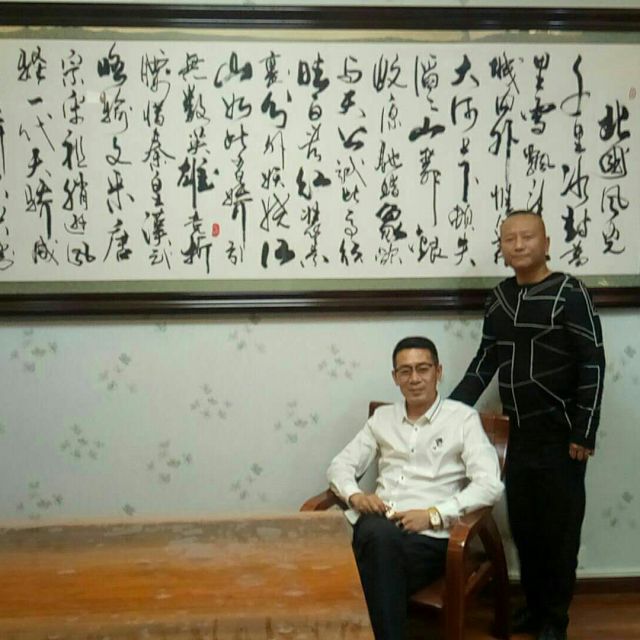 北國風光
千里冰封萬
里雪飄
城內外惟
大河上下頓失
滔滔山舞銀
蛇原馳蠟象欲
與天公試比高須
晴日看紅裝素
裹分外妖嬈江
山如此多嬌引
無數英雄競折
腰惜秦皇漢武
略輸文采唐
宗宋祖稍遜風
騷一代天驕成